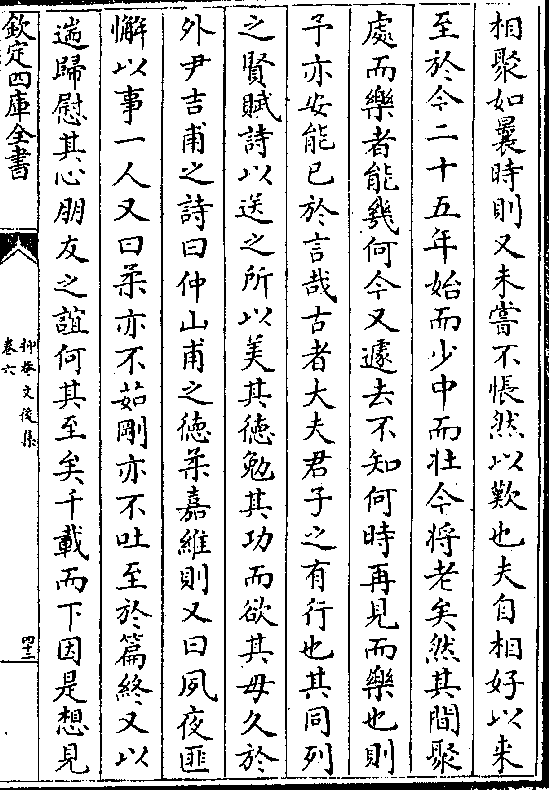 相聚如曩時則又未嘗不悵然以歎也夫自相好以来
至於今二十五年始而少中而壮今将老矣然其間聚
處而樂者能幾何今又遽去不知何時再見而樂也則
予亦安能已於言哉古者大夫君子之有行也其同列
之賢賦詩以送之所以美其徳勉其功而欲其毋久於
外尹吉甫之詩曰仲山甫之徳柔嘉維則又曰夙夜匪
懈以事一人又曰柔亦不茹剛亦不吐至於篇終又以
遄歸慰其心朋友之誼何其至矣千載而下因是想見
欽定四庫全書
抑菴文後集
卷六
四十三